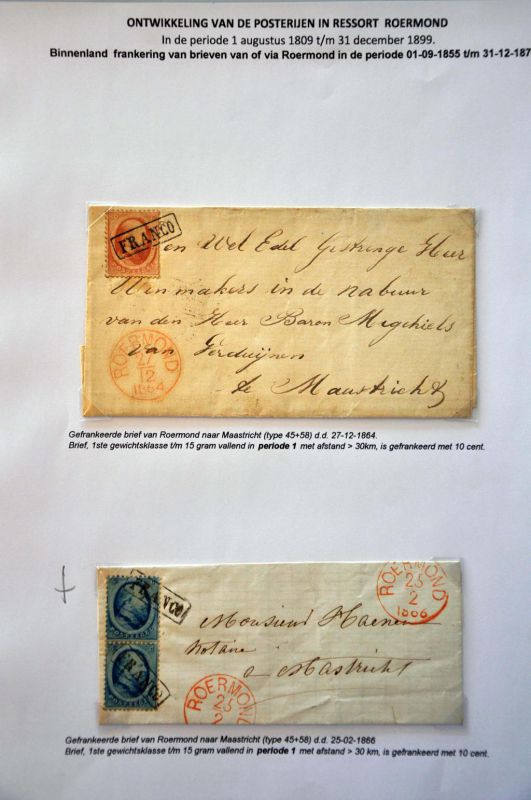 ONTWIKKELING VAN DE POSTERIJEN IN RESSORT ROERMOND
In de periode 1 augustus 1809 t/m 31 december 1899.
Binnenland frankering van brieven van of via Roermond in de periode 01-09-1855 t/m 31-12-187
FRANCO
en Wel Edel Gestrenge Heer
Wijnmakers in de nabuur
van den Heer Baron Megchiels
van
te Maastricht
ROERMOND
27
12
1864
Gefrankeerde brief van Roermond naar Maastricht (type 45+58) d.d. 27-12-1864.
Brief, 1ste gewichtsklasse t/m 15 gram vallend in periode 1 met afstand > 30km, is gefrankeerd met 10 cent.
FRANCO
FRANCO
ROERMOND
25
2
1866
Monsieur Haenen
Notaire
a Mastricht
ROERMOND
25
Gefrankeerde brief van Roermond naar Maastricht (type 45+58) d.d. 25-02-1866
Brief, 1ste gewichtsklasse t/m 15 gram vallend in periode 1 met afstand > 30 km, is gefrankeerd met 10 cent.